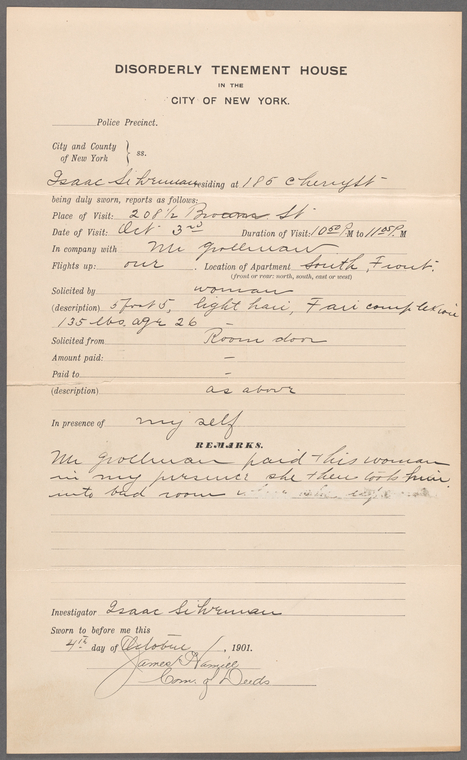 DISORDERLY TENEMENT HOUSE
IN THE
CITY OF NEW YORK.
Police Precinct.
City and County
of New York } ss.
Isaac Silverman residing at 186 Cherry St
being duly sworn, reports as follows:
Place of Visit: 208 1/2 Broome St
Date of Visit: Oct 3rd Duration of Visit: 10 50 P. M to 11 05 P. M
In company with Mr Grollman
Flights up: our . Location of Apartment South, Front.
(front or rear: north, south, east or west)
Solicited by woman
(description) 5 foot 5, light hair, Fair complexion
135 lbs, age 26 –
Solicited from Room door
Amount paid: –
Paid to –
(description) as above
In presence of my self
REMARKS.
Mr Grollman paid this woman
in my presence she then took him
into bed room
Investigator Isaac Silverman
Sworn to before me this
4th day of October , 1901.
James
Com. of Deeds